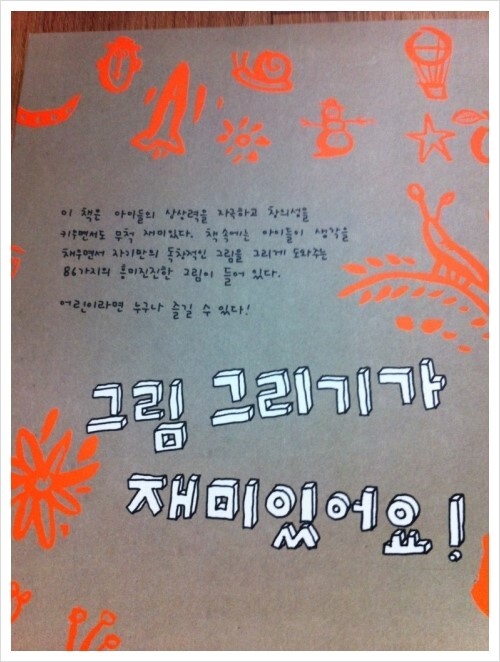 이 책은 아이들의 상상력을 자극하고 창의성을
키우면서도 무척 재미있다. 책속에는 아이들이 생각을
채우면서 자기만의 독창적인 그림을 그리게 도와주는
86가지의 흥미진진한 그림이 들어 있다.
어린이라면 누구나 즐길 수 있다!
그림 그리기가
재미있어요!